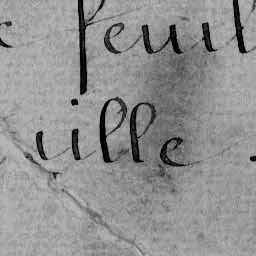 feuil
uille